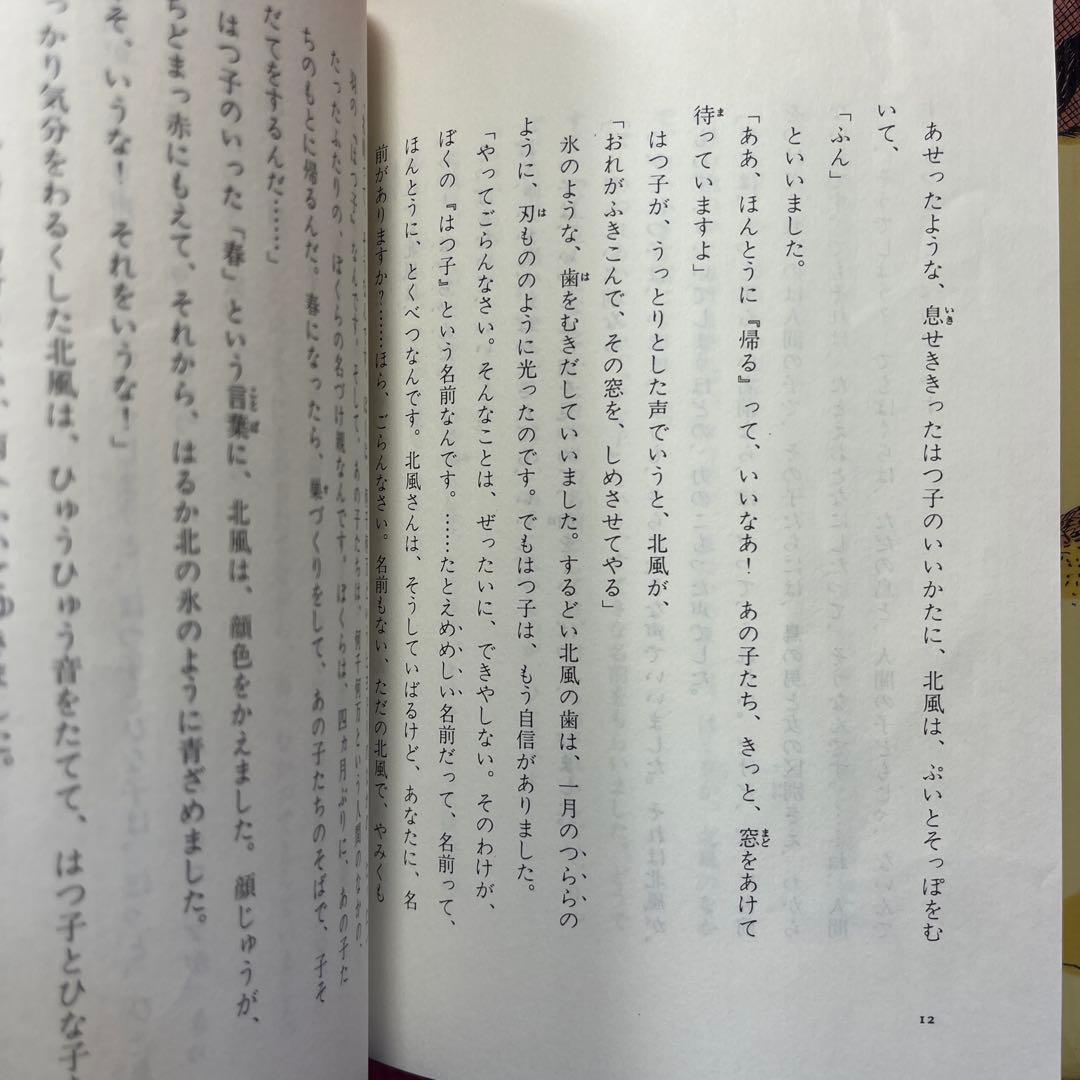 あせったような、息せききったはつ子のいいかたに、北風は、ぷいとそっぽをむ
いて、
「ふん」
といいました。
「ああ、ほんとうに『帰る』って、いいなあ！　あの子たち、きっと、窓をあけて
待っていますよ」
はつ子が、うっとりとした声でいうと、北風が、
「おれがふきこんで、その窓を、しめさせてやる」
氷のような、歯をむきだしていいました。するどい北風の歯は、一月のつららの
ように、刃もののように光ったのです。でもはつ子は、もう自信がありました。
「やってごらんなさい。そんなことは、ぜったいに、できやしない。そのわけが、
ぼくの『はつ子』という名前なんです。……たとえめめしい名前だって、名前って、
ほんとうに、とくべつなんです。北風さんは、そうしていばるけど、あなたに、名
前がありますか？……ほら、ごらんなさい。名前もない、ただの北風で、やみくも
12
なんです。そして、あの子たちは、何千何万という人間のなかの、
たったふたりの、ぼくらの名づけ親なんです。ぼくらは、四カ月ぶりに、あの子た
ちのもとに帰るんだ。春になったら、巣づくりをして、あの子たちのそばで、子そ
だてをするんだ……」
はつ子のいった「春」という言葉に、北風は、顔色をかえました。顔じゅうが、
ちどまっ赤にもえて、それから、はるか北の氷のように青ざめました。
そ、いうな！　それをいうな！」
っかり気分をわるくした北風は、ひゅうひゅう音をたてて、はつ子とひな子